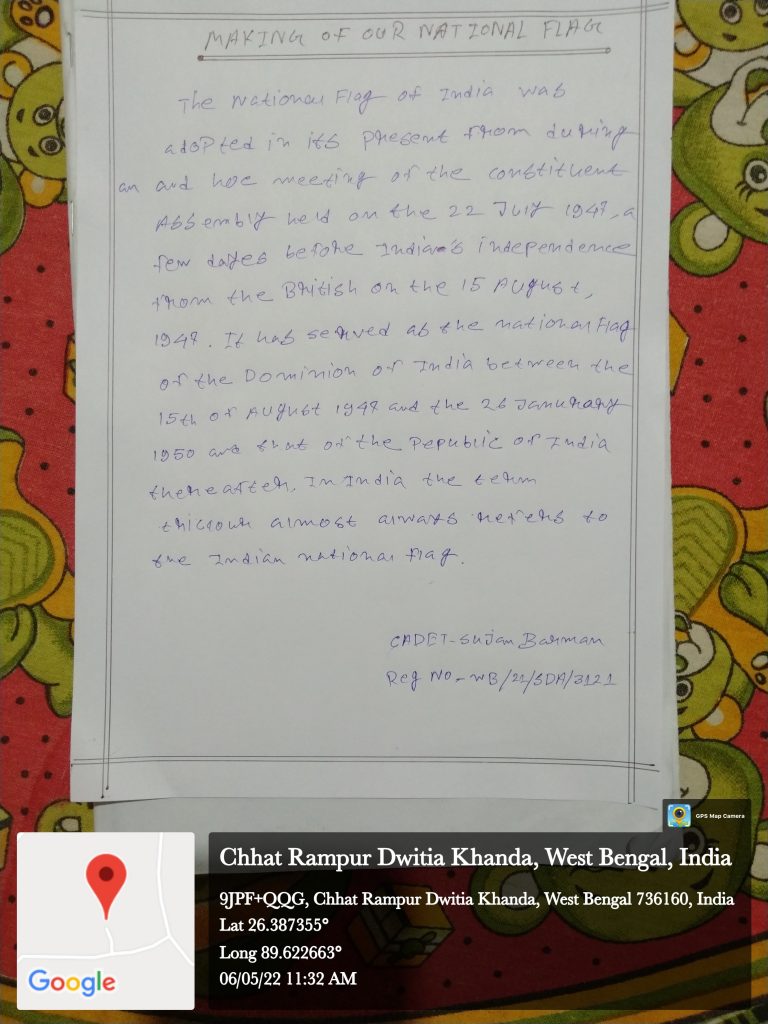 MAKING OF OUR NATIONAL FLAG
The National Flag of India was
adopted in its present from during
an and hoc meeting of the constituent
Assembly held on the 22 July 1947, a
few dayes before India's independence
from the British on the 15 August,
1947. It has served as the national Flag
of the Dominion of India between the
15th of August 1947 and the 26 Januraray
1950 and that of the Pepublic of India
thereafter. In India the term
tricrour almost always referes to
the Indian national flag.
CADET-Sujan Barman
Reg No-WB/21/SDA/3121
GPS Map Camera
Chhat Rampur Dwitia Khanda, West Bengal, India
9JPF+QQG, Chhat Rampur Dwitia Khanda, West Bengal 736160, India
Lat 26.387355°
Long 89.622663°
06/05/22 11:32 AM
Google